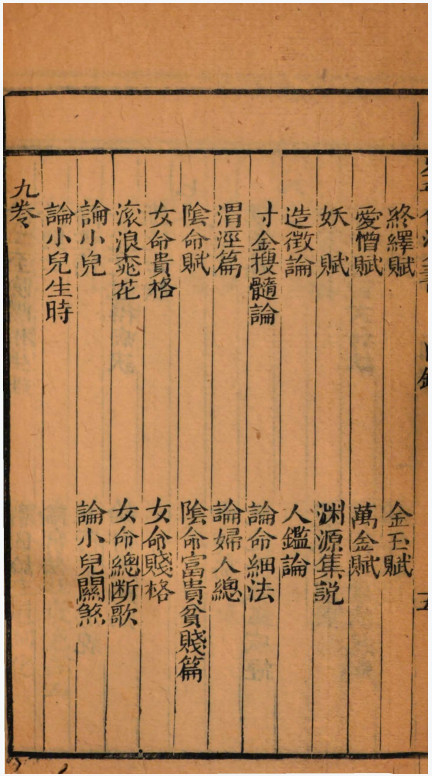 終繹賦 金玉賦
愛憎賦 萬金賦
妖賦 渊源集説
造微論 人鑑論
寸金搜髓論 論命細法
渭涇篇 論婦人總
陰命賦 陰命富貴貧賤篇
女命貴格 女命賤格
滾浪桃花 女命總断歌
論小兒 論小兒關煞
論小兒生時
九巻